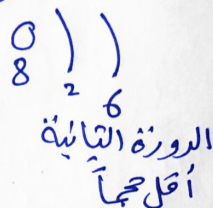 0 ) )
8 2 6
الدورة الثانية
أقل حجماً